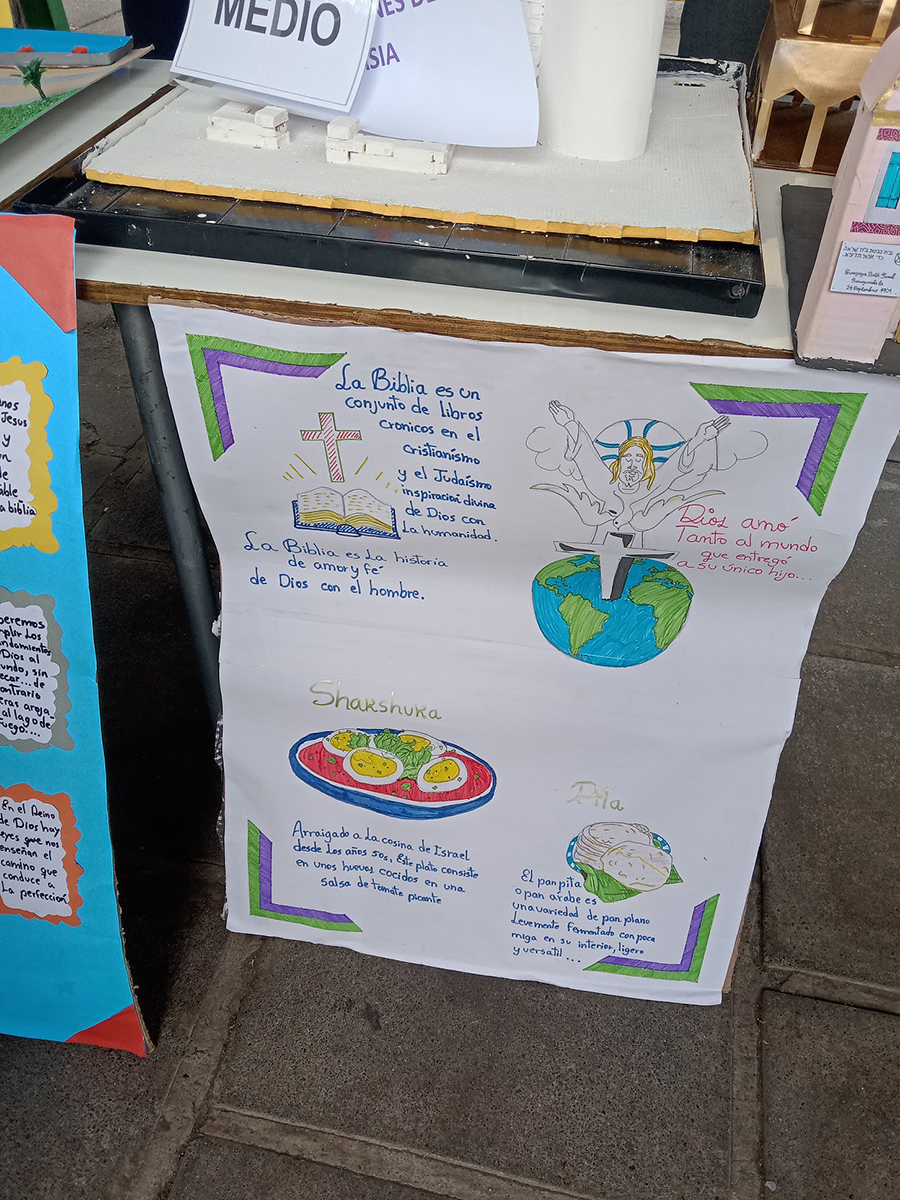 MEDIO
NES DE
ASIA
La Biblia es un
conjunto de libros
cronicos en el
cristianismo
y el Judaísmo
inspiración divina
de Dios con
La humanidad.
La Biblia es La historia
de amor y fé
de Dios con el hombre.
Dios amó
Tanto al mundo
que entregó
a su único hijo...
Sharshura
Arraigado a La cosina de Israel
desde Los años 50s, Este plato consiste
en unos huevos cocidos en una
salsa de tomate picante
Pita
El pan pita
o pan arabe es
una variedad de pan plano
Levemente fermentado con poca
miga en su interior, ligero
y versatil ...
nos
Jesus
y
un
de
able
a biblia
beremos
mplir Los
ndamientos
Dios al
undo, sin
ecar... de
ontrario
eras aroja
al lago de
uego...
En el Reino
de Dios hay
eyes que nos
enseñan el
camino que
conduce a
La perfección